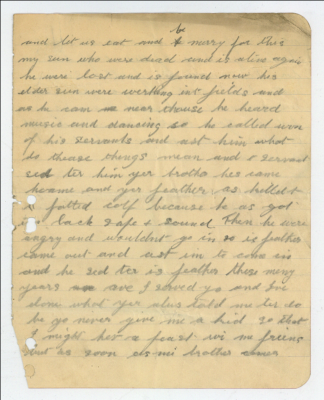 be
and let us eat and merry for this
my son who were dead and is alive again
he were lost and is found now his
elder sun were werking in fields and
as he cam near thouse he heard
music and dancing so he called won
of his servants and ast him what
do thease things mean and servant
sed ter him yer brotha hes came
hoame and yer feather as killed
fatted calf because he as got
im back safe & sound Then he were
angry and wouldnt go in so is feather
came out and ast im to come in
and he sed ter is feather these meny
years ave I served yo and Ive
done what yer allus told me ter do
he yo never give me a kid so that
I might hev a feast wi me friens
but as soon as mi brother comes